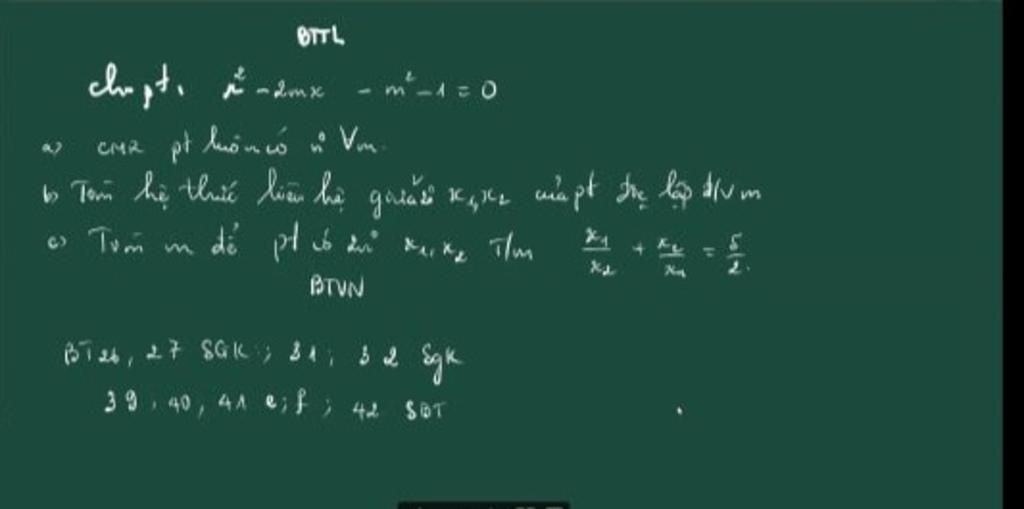 BTTL
Cho pt: x² - 2mx - m² - 1 = 0
a) CMR pt luôn có n° ∀m.
b) Tìm hệ thức liên hệ giữa x₁, x₂ của pt độc lập đ/v m
c) Tìm m để pt có 2n° x₁, x₂ T/m x₁/x₂ + x₂/x₁ = 5/2.
BTVN
BT 26, 27 SGK; 31; 32 Sgk
39, 40, 41 e; f; 42 SBT